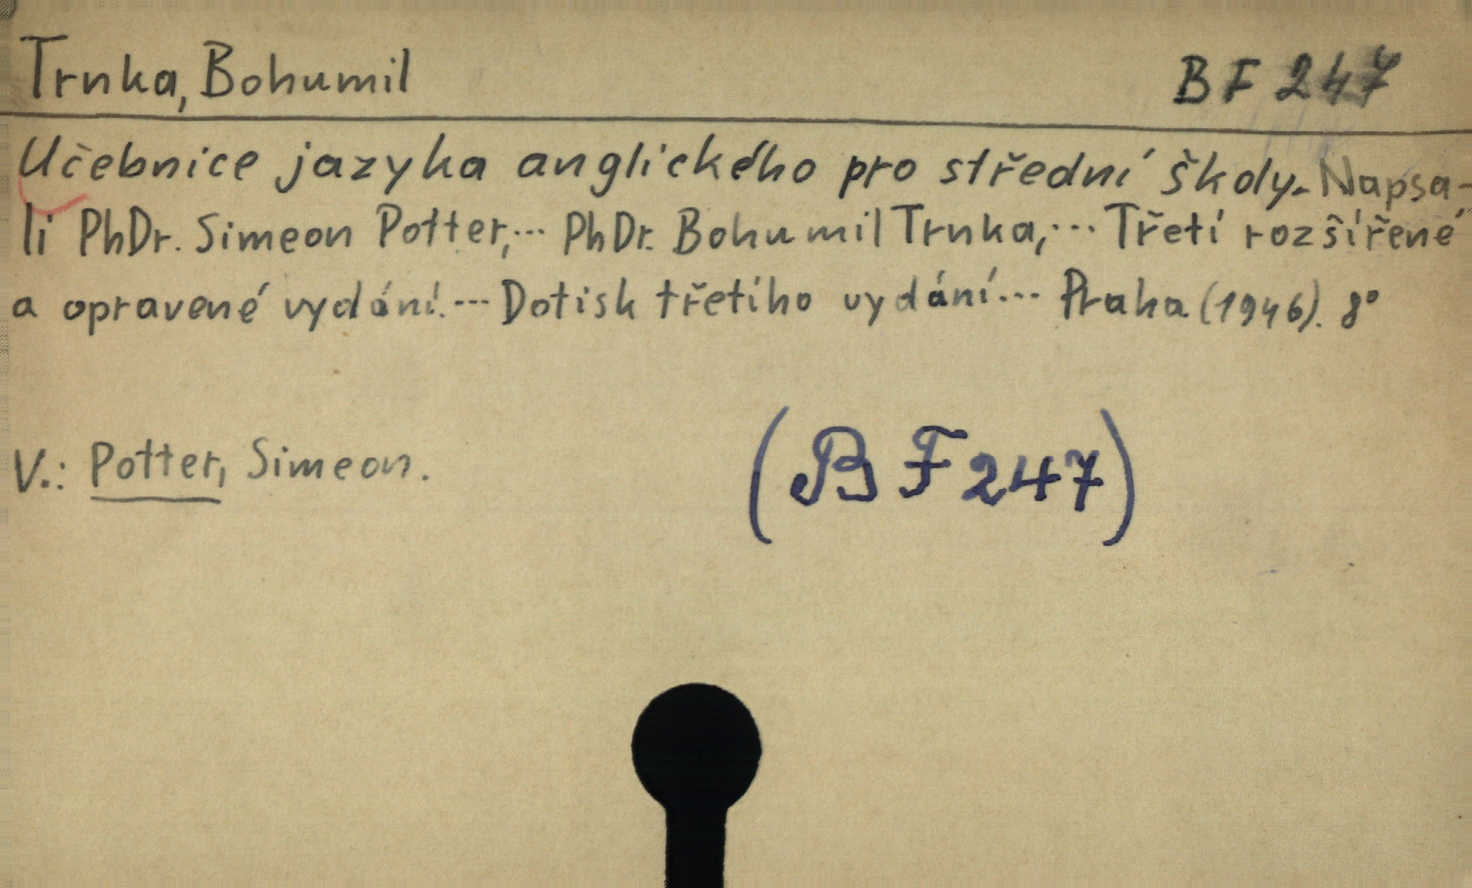 Trnka, Bohumil BF 247
Učebnice jazyka anglického pro střední školy. Napsa-
li PhDr. Simeon Potter,... PhDr. Bohumil Trnka,... Třetí rozšířené
a opravené vydání.... Dotisk třetího vydání... Praha (1946). 8°
V.: Potter, Simeon. (BF 247)